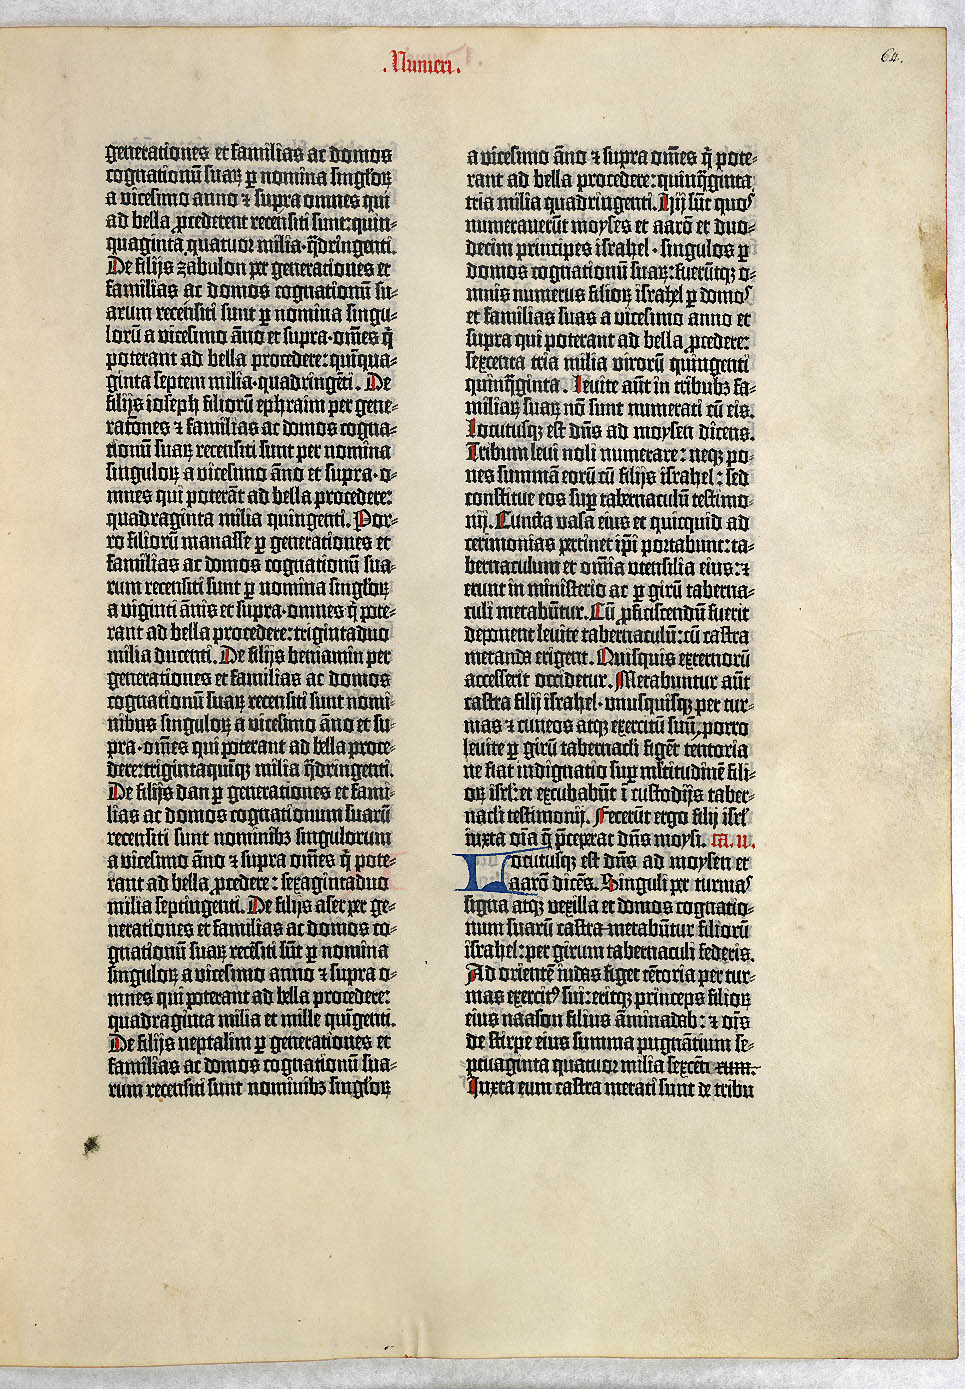 .Numeri.
64.
generationes et familias ac domos
cognationū suaꝝ ꝑ nomina singłoꝝ
a vicesimo anno ⁊ supra omnes qui
ad bella ꝓcederent recensiti sunt: quin-
quaginta quatuor milia · q̄dringenti.
De filijs zabulon per generationes et
familias ac domos cognationū su-
arum recensiti sunt ꝑ nomina singu-
lorū a vicesimo āno et supra · om̄es q̄
poterant ad bella procedere: quīqua-
ginta septem milia · quadringēti. De
filijs ioseph filiorū ephraim per gene-
ratōnes ⁊ familias ac domos cogna-
tionū suaꝝ recensiti sunt per nomina
singuloꝝ a vicesimo āno et supra · o-
mnes qui poterāt ad bella procedere:
quadraginta milia quingenti. Por-
ro filiorū manasse ꝑ generationes et
familias ac domos cognationū sua-
rum recensiti sunt ꝑ nomina singłoꝝ
a viginti ānis et supra · omnes q̄ pote-
rant ad bella procedere: trigintaduo
milia ducenti. De filijs beniamin per
generationes et familias ac domos
cognationū suaꝝ recensiti sunt nomi-
nibus singuloꝝ a vicesimo āno et su-
pra · om̄es qui poterant ad bella proce-
dere: trigintaquinqꝫ milia q̄dringenti.
De filijs dan ꝑ generationes et fami-
lias ac domos cognationum suarū
recensiti sunt nominibꝫ singulorum
a vicesimo āno ⁊ supra om̄es q̄ pote-
rant ad bella ꝓcedere: sexagintaduo
milia septingenti. De filijs aser per ge-
nerationes et familias ac domos co-
gnationū suaꝝ recēsiti sūt ꝑ nomina
singuloꝝ a vicesimo anno ⁊ supra o-
mnes qui poterant ad bella procedere:
quadraginta milia et mille quīgenti.
De filijs neptalim ꝑ generationes et
familias ac domos cognationū sua-
rum recensiti sunt nominibꝫ singłoꝝ
a vicesimo āno ⁊ supra om̄es q̄ pote-
rant ad bella procedere: quinq̄ginta
tria milia quadringenti. Hij sūt quos
numerauerūt moyses et aarō et duo-
decim principes israhel · singulos ꝑ
domos cognationū suaꝝ: fuerūtqꝫ o-
mnis numerus filioꝝ israhel ꝑ domos
et familias suas a vicesimo anno et
supra qui poterant ad bella ꝓcedere:
sexcenta tria milia virorū quingenti
quinq̄ginta. Leuite aūt in tribubꝫ fa-
miliaꝝ suaꝝ nō sunt numerati cū eis.
Locutusqꝫ est dn̄s ad moysen dicens.
Tribum leui noli numerare: neqꝫ po-
nes summā eorū cū filijs israhel: sed
constitue eos suꝑ tabernaculū testimo-
nij. Cuncta vasa eius et quicquid ad
cerimonias ꝑtinet ip̄i portabunt: ta-
bernaculum et om̄ia vtensilia eius: ⁊
erunt in ministerio ac ꝑ girū taberna-
culi metabūtur. Cū ꝓficiscendū fuerit
deponent leuite tabernaculū: cū castra
metanda erigent. Quisquis externorū
accesserit occidetur. Metabuntur aūt
castra filij israhel · vnusquisqꝫ per tur-
mas ⁊ cuneos atqꝫ exercitū suū, porro
leuite ꝑ girū tabernacli figēt tentoria
ne fiat indignatio suꝑ mltitudinē fili-
oꝝ isrl: et excubabūt ī custodijs taber-
nacli testimonij. Fecerūt ergo filij isrl
iuxta oīa q̄ p̄ceperat dn̄s moysi. ca. ii.
Locutusqꝫ est dn̄s ad moysen et
aarō dicēs. Singuli per turmas
signa atqꝫ vexilla et domos cognatio-
num suarū castra metabūtur filiorū
israhel: per girum tabernaculi federis.
Ad orientē iudas figet tētoria per tur-
mas exercitꝰ sui: eritqꝫ princeps filioꝝ
eius naason filius āminadab: ⁊ oīs
de stirpe eius summa pugnātium se-
ptuaginta quatuor milia sexcēti
Iuxta eum castra metati sunt de tribu